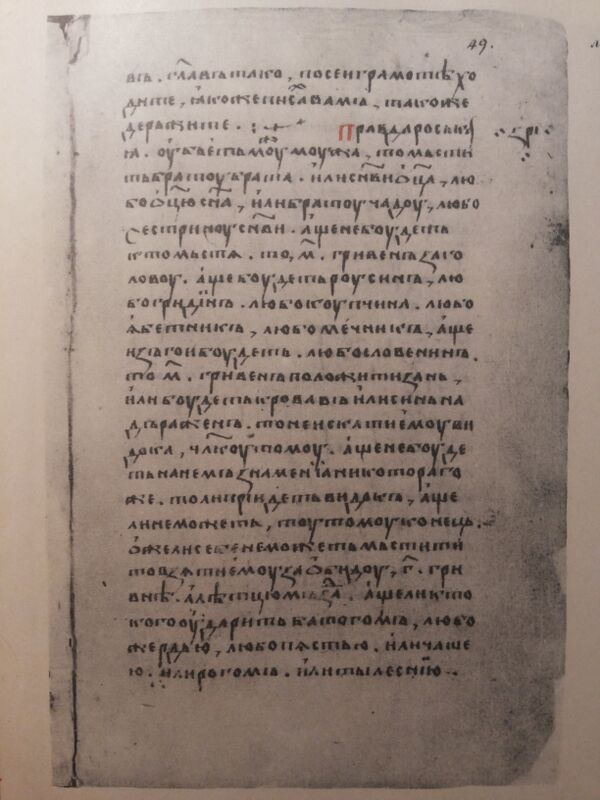 49.
въ. гл҃авъ тако, по сеи грамотѣ хо
дите, ꙗкоже писа вамъ, такоже
держите. Правда роськꙗ
ꙗ. оубьеть моуж моужа, то мьсти
ть братоу брата. или сн҃ви ѡц҃а, лю
бо ѡц҃ю сн҃а, или братоу чадоу, любо
сестриноу сн҃ви. аще не боудеть
кто мьстѧ. то, м҃. гривенъ за го
ловоу. аще боудеть роусинъ, лю
бо гридинъ. любо коупчина. любо
ꙗбетникъ, любо мечникъ, аще
изъгои боудеть. любо словенинъ.
то м҃. гривенъ положити зань,
или боудеть кровавъ или синь на
дъраженъ. то не искати ємоу ви
дока, чл҃коу томоу. аще не боуде
ть на немъ знаменіа никотораго
же. то ли приидеть видокъ, аще
ли не можеть, тоу томоу конець.
ѡже ли себе не можеть мьстити
то взѧти ємоу за ѡбидоу, г҃. гри
внѣ. а лѣтцю мьзда. аще ли кто
кого оударить батогомъ, любо
жердью, любо пѧстью. или чаше
ю. или рогомъ. или тылеснїю.